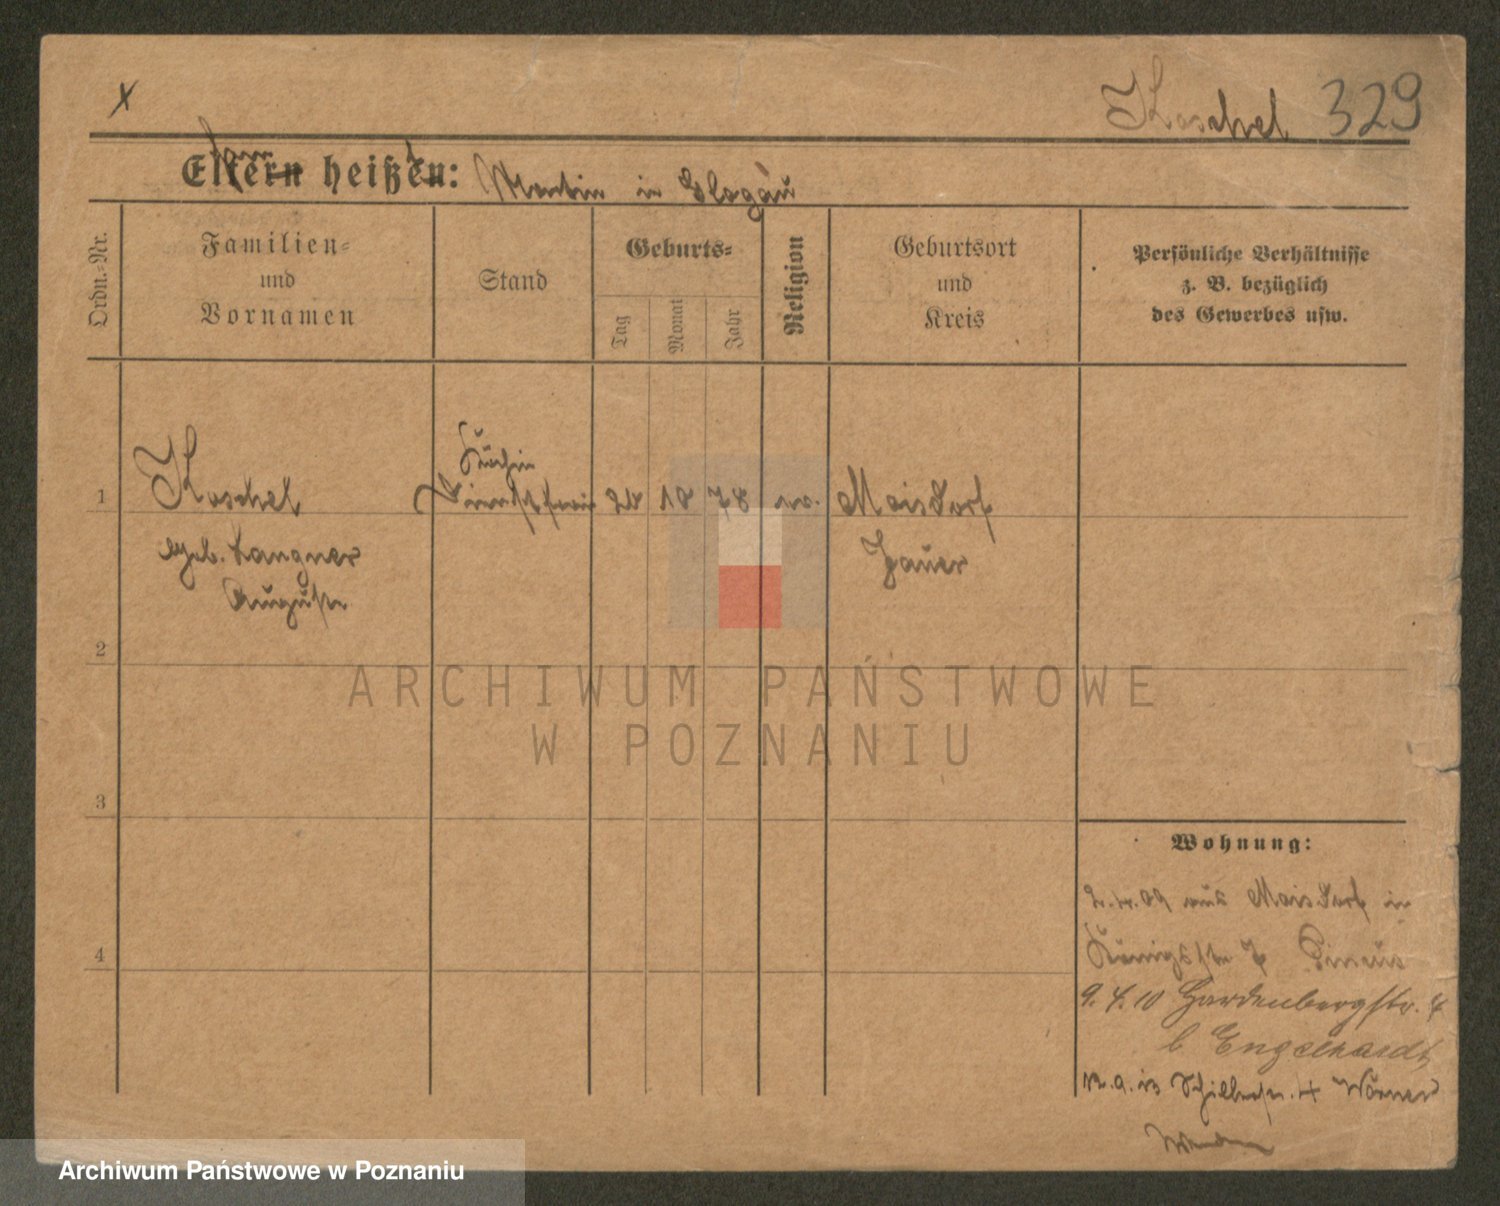 x
Koschel 329
Eltern heißen: Martin in Glogau
Ordn.-Nr.
Familien-
und
Vornamen
Stand
Geburts-
Tag
Monat
Jahr
Religion
Geburtsort
und
Kreis
Persönliche Verhältnisse
z. B. bezüglich
des Gewerbes usw.
Köchin
1 Koschel 10 78 Maisdorf
geb. Langner Jauer
Auguste
2
ARCHIWUM PAŃSTWOWE
W POZNANIU
3
4
Wohnung:
09 aus Maisdorf in
Königsstr. 7 Pincus
9. 4. 10 Hardenbergstr. 4
b Engelhardt
Schillerstr. 4 Wörner
Archiwum Państwowe w Poznaniu